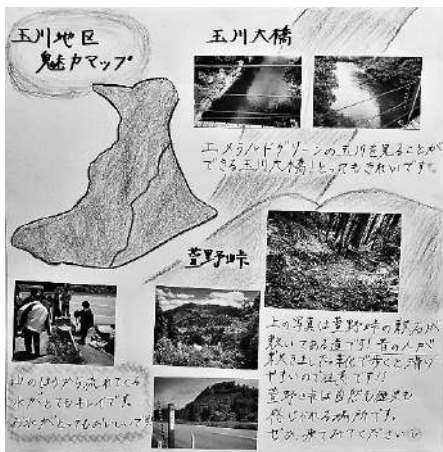 玉川地区
魅力マップ
玉川大橋
エメラルドグリーンの玉川を見ることが
できる玉川大橋！とってもきれいです。
萱野峠
上の写真は萱野峠の敷石が
敷いてある道です！昔の人が
敷きました。
歩くと滑り
やすいので注意です！！
萱野峠は自然も歴史も
感じられる場所です。
ぜひ、来てみてください
山のほうから流れてくる
水がとてもキレイです。
お水がとってもおいしいです